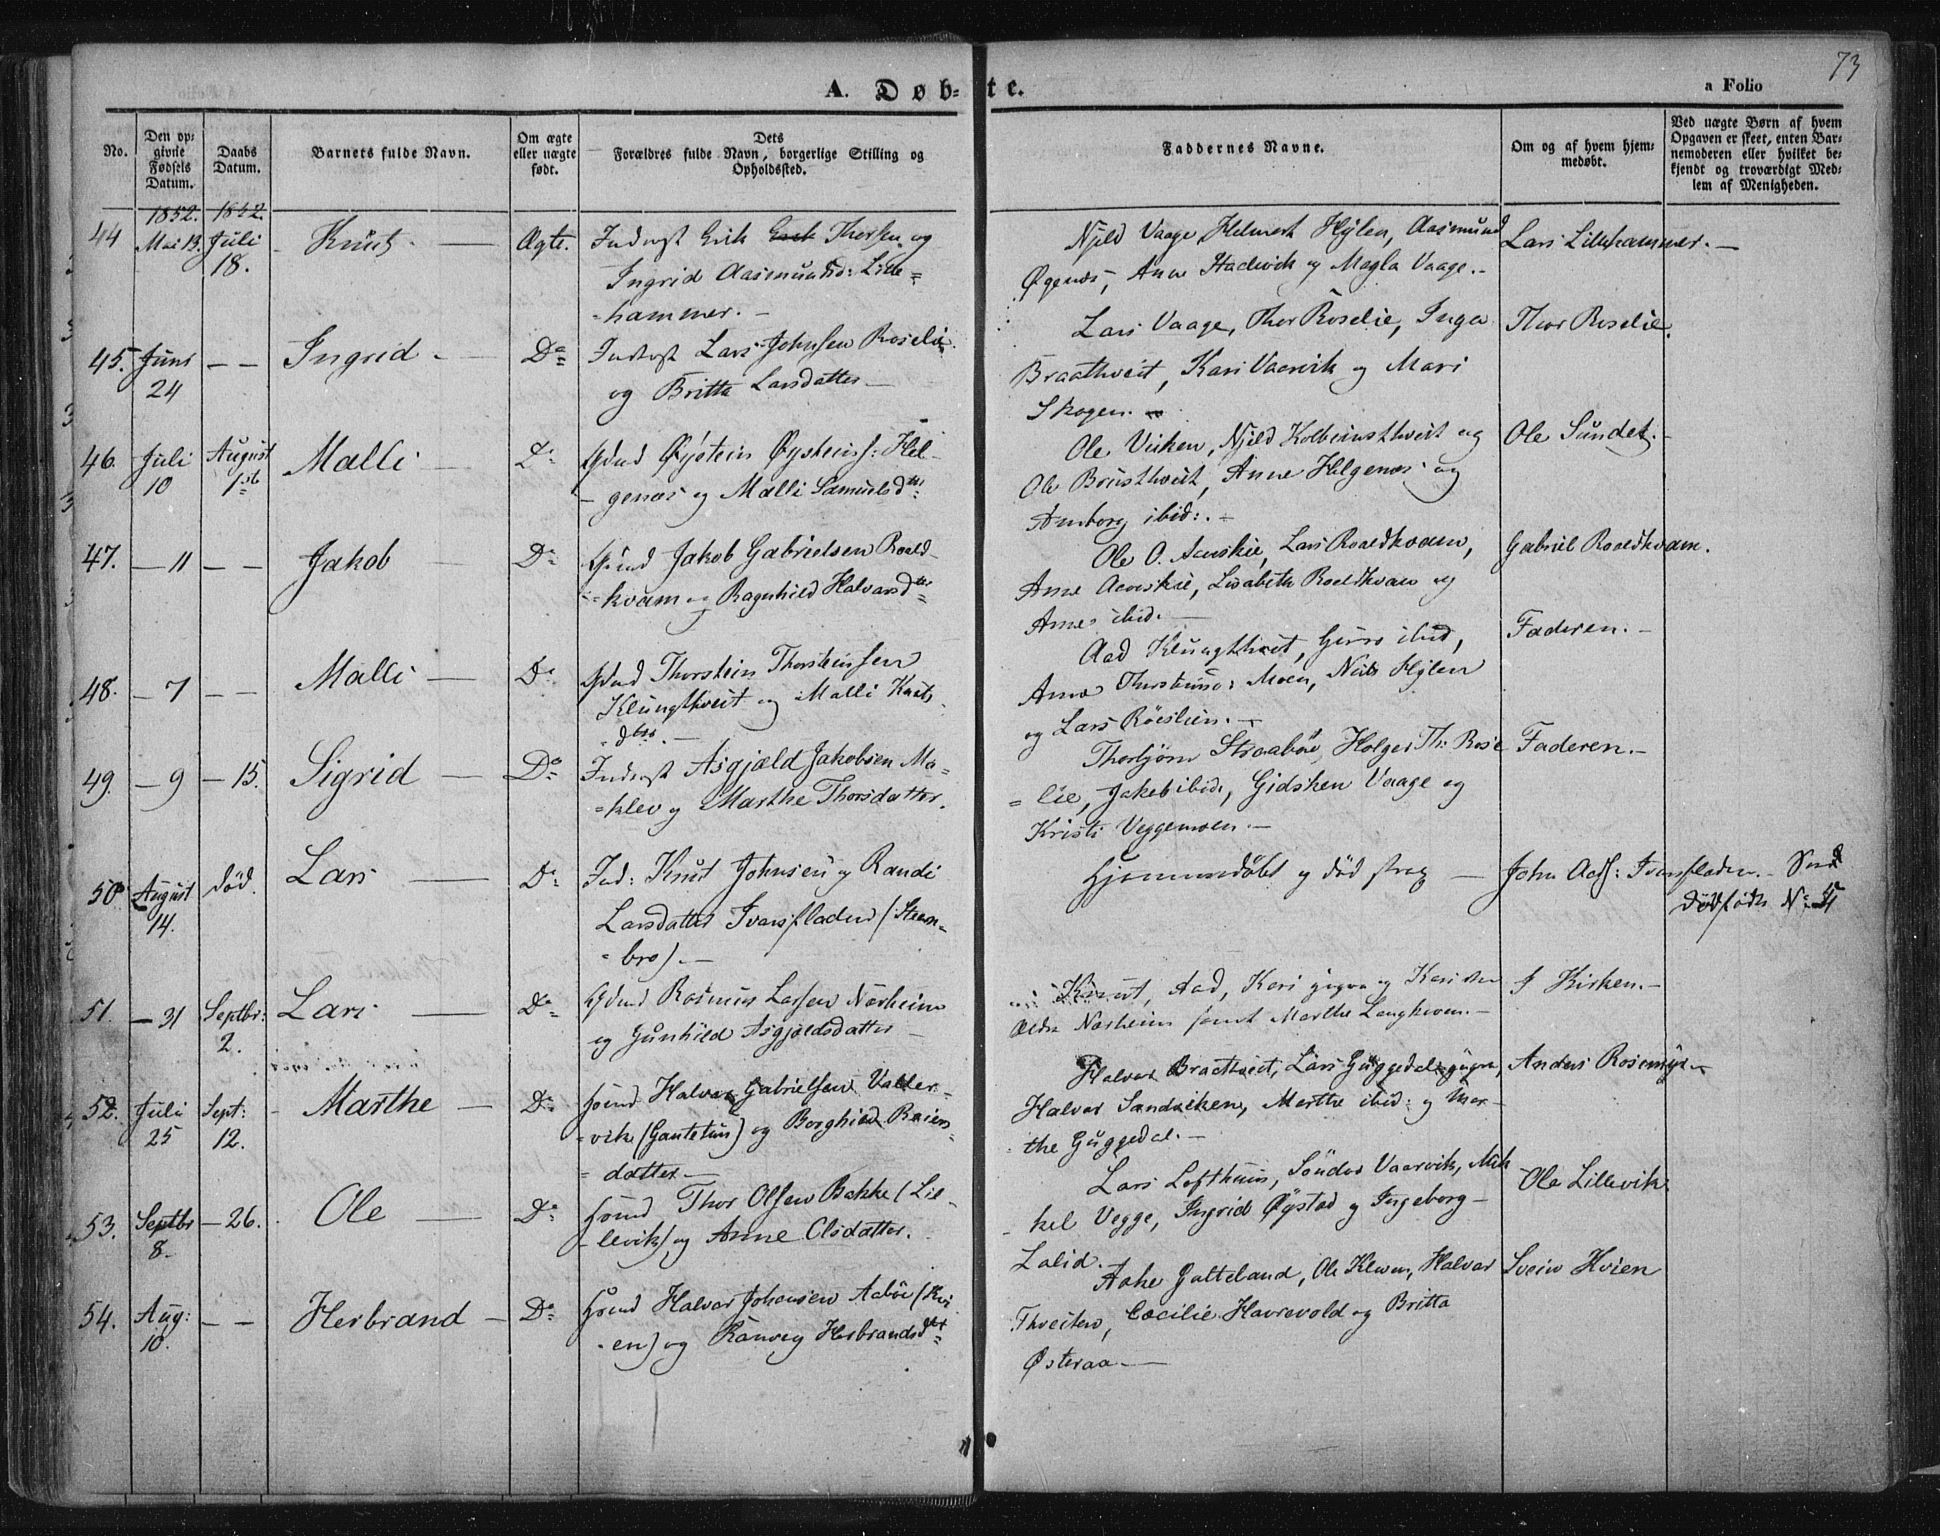 73
A. Døb= te.
a Folio
No.
Den op=
givne
Fødsels
Datum.
Daabs
Datum.
Barnets fulde Navn.
Om ægte
eller uægte
født.
Dets
Forældres fulde Navn, borgerlige Stilling og
Opholdssted.
Faddernes Navne.
Om og af hvem hjem=
medøbt.
Ved uægte Børn af hvem
Opgaven er skeet, enten Bar=
nemoderen eller hvilket be=
kjendt og troværdigt Med=
lem af Menigheden.
1852. 1852.
44 Mai 13. Juli
18.
Knut Ægte. Inderst Erik Thorsen og
Ingrid Aasmundsd: Lille=
=hammer.
Njeld Vaage, Helmert Hylen, Aasmund
Øgenæs, Anne Hadevik og Magla Vaage.
Lars Lillehammer.
45. Juni
24
Ingrid Do Inderst Lars Johnsen Roselie
og Britta Larsdatter
Lars Vaage, Thor Roselie, Inga
Braathveit, Kari Vaarvik og Mari
Skogen.
Thor Roselie.
46. Juli
10
August
1st
Malli Do Gbrd Øystein Øysteins: Hel-
-genæs og Malli Samuelsdtr
Ole Viken, Njeld Kolbeinsthveit og
Ole Brusthveit, Anne Helgenæs og
Amborg ibid:.
Ole Sundet.
47. 11
Jakob Do Gbrd Jakob Gabrielsen Roald-
kvam og Ragnhild Halvarsdtr
Ole O. Aarskie, Lars Roaldkvam,
Anne Aarskie, Lisabeth Roaldkvam og
Anne ibid.
Gabriel Roaldkvam.
48. 7
Malli Do Gbrd Thorstein Thorsteinsen
Klungthveit og Malli Knuts
dtr.
Aad Klungthveit, Guro ibid,
Anne Thorsteins: Moen, Niels Hylen
og Lars Röeslien.
Faderen.
49. 9 15.
Sigrid Do Inderst Asgjæld Jakobsen Ma=
=klev og Marthe Thorsdatter.
Thorbjörn Straaböe, Holger Th: Rose
=lie, Jakob ibid, Gidsken Vaage og
Kristi Veggemoen.
Faderen.
50 August
14.
död.
Lars Do Ind: Knut Johnsen og Randi
Larsdatter Ivarsfladen (Steen=
=bro).
Hjemmedöbt og död strax
John Aads: Ivarsfladen.
dödfödte No
51. 31 Septbr:
2.
Lars Do Gbrd Rasmus Larsen Nærheim
og Gunhild Asgjældsdatter
Knut, Aad, Kari yngre og Kari den
ældre Nærheim samt Marthe Langhuen.
I Kirken.
52. Juli
25
Sept:
12.
Marthe Do Hbmd Halvar Gabrielsen Valter-
=vik (Gautetun) og Borghild Reiers=
=datter
Halvar Braathveit, Lars Guggedal yngre,
Halvar Sandviken, Marthe ibid: og Mar=
the Guggedal.
Anders Rosemyr
53. Septbr
8.
26.
Ole Do Hbmd Thor Olsen Bakke (Lil=
-levik) og Anne Olsdatter.
Lars Lofthuus, Söndov Vaarvik, Mik
kel Vegge, Ingrid Øystad og Ingeborg
Lalid.
Ole Lillevik.
54. Aug:
10.
Herbrand Do Hbmd Halvar Johansen Aaböe (Kvi
-en) og Ranveg Herbrandsdtr
Aake Gatteland, Ole Kleven, Halvar
Thveiten, Cæcilie Havrevold og Britta
Østeraa.
Svein Kvien